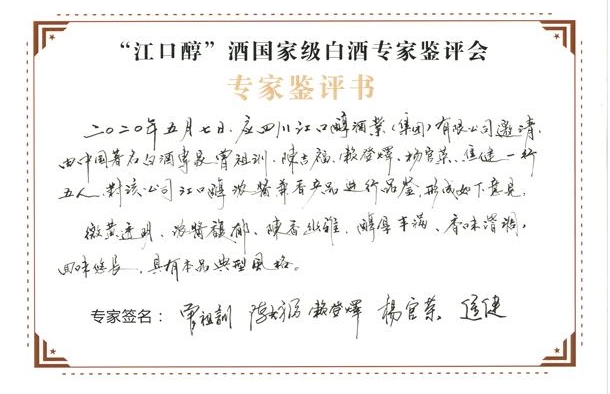 “江口醇”酒国家级白酒专家鉴评会
专家鉴评书
二〇二〇年五月七日,应四川江口醇酒業(集团)有限公司邀请,
由中国著名白酒專家曾祖训、陳吉福、賴登燡、杨官荣、伍建一行
五人,對該公司江口醇浓醬兼香产品進行品鉴,形成如下意見,
微黄透明、浓醬馥郁、陳香幽雅、醇厚丰满、香味谐調,
回味悠長,具有本品典型風格。
专家签名: 曾祖訓 賴登燡 楊官荣